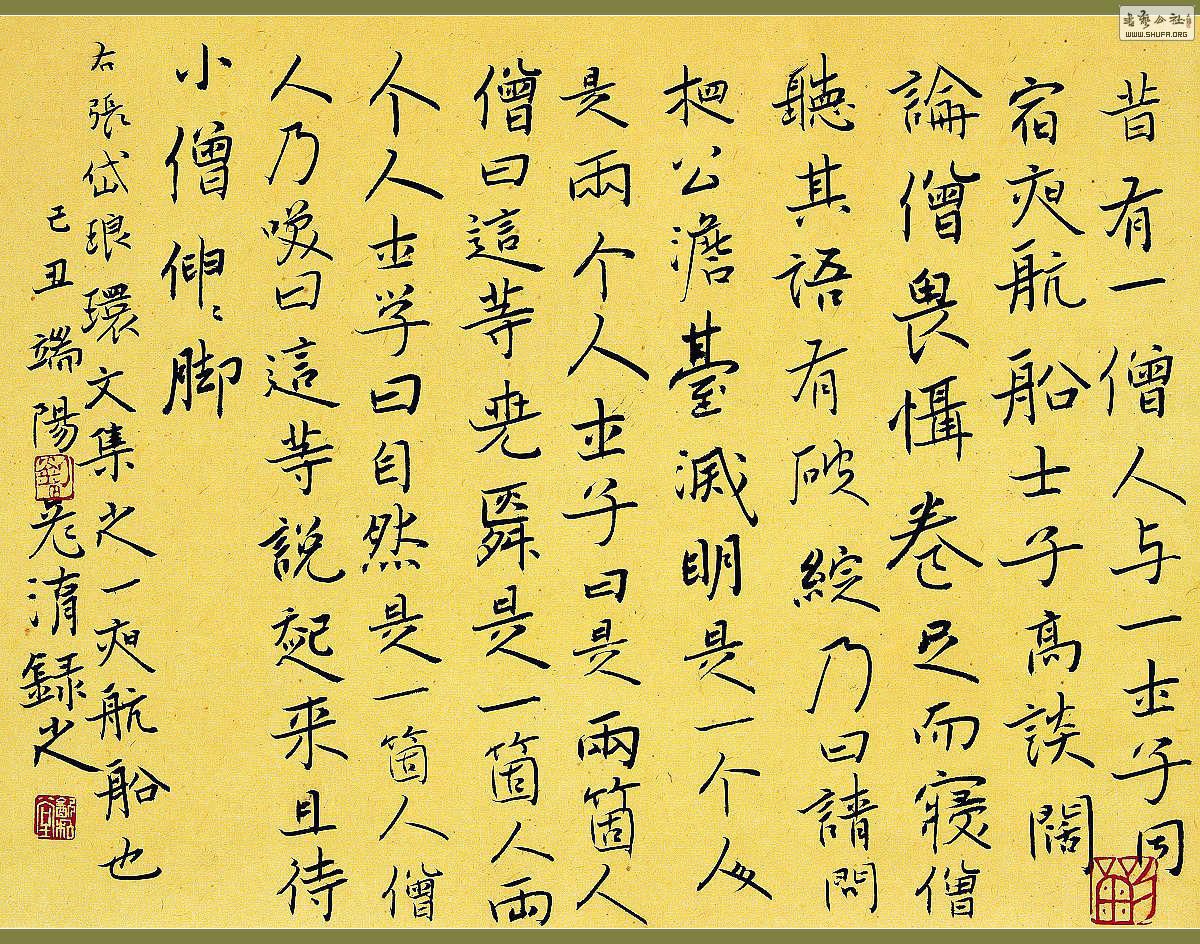 昔有一僧人与一士子同
宿夜航船士子高談闊
論僧畏懾卷足而寢僧
聽其語有破綻乃曰請問
相公澹臺滅明是一个人
是兩个人士子曰是兩箇人
僧曰這等堯舜是一箇人兩
个人士学曰自然是一箇人僧
人乃笑曰這等説起来且待
小僧伸々脚
右張岱琅環文集之一夜航船也
己丑端陽老録之
书艺公社
WWW.SHUFA.ORG